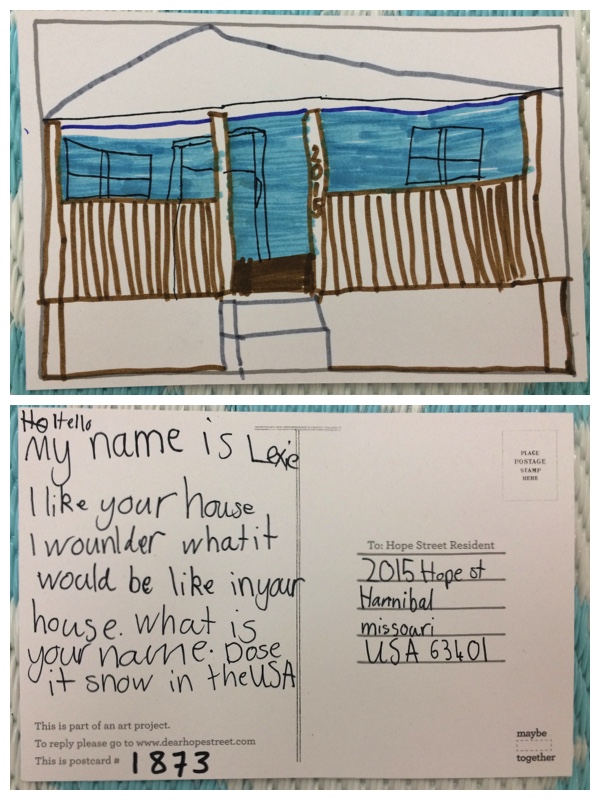 2015
Ho Hello
My name is Lexie
I like your house
I wounlder what it
would be like in your
house. What is
your name. Dose
it snow in the USA
This is part of an art project.
To reply please go to www.dearhopestreet.com
This is postcard # 1873
PLACE
POSTAGE
STAMP
HERE
To: Hope Street Resident
2015 Hope st
Hannibal
missouri
USA 63401
maybe
together